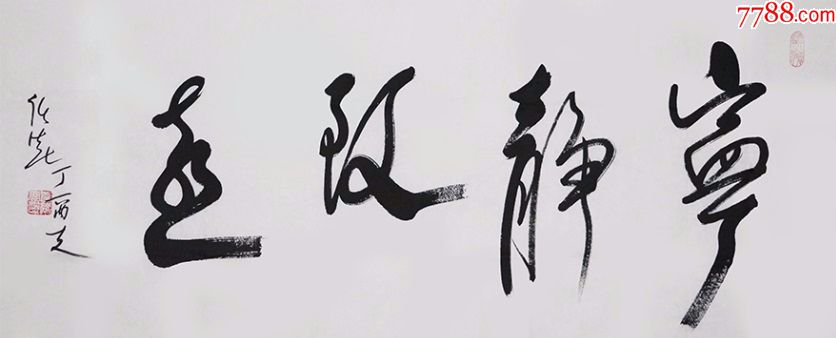 7788.com
寧靜致遠
丁酉